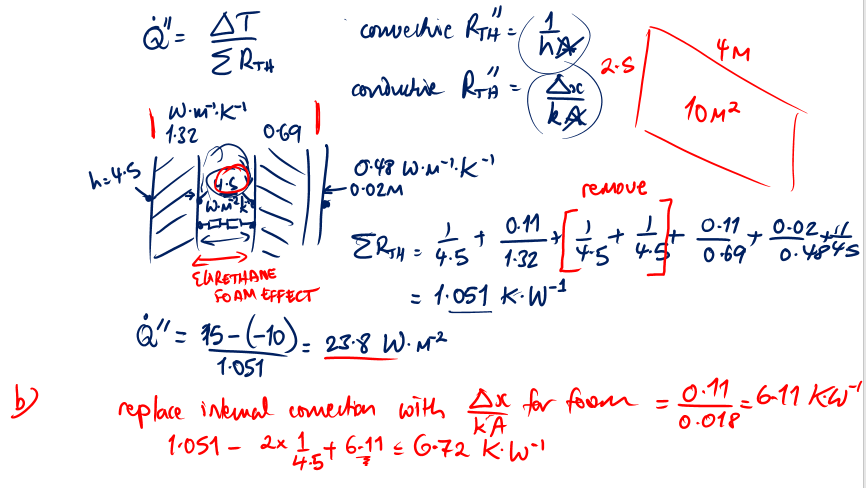 Q̇" = ΔT / ΣR_TH
convective R_TH" = 1 / hA
conductive R_TH" = Δx / kA
4M
2.5
10M²
W·m⁻¹·K⁻¹
1.32 0.69
h=4.5
4.5
W·m⁻²K⁻¹
0.48 W·m⁻¹·K⁻¹
0.02M
remove
ΣR_TH = 1/4.5 + 0.11/1.32 + [1/4.5 + 1/4.5] + 0.11/0.69 + 0.02/0.48 + 1/45
= 1.051 K·W⁻¹
URETHANE
FOAM EFFECT
Q̇" = 15-(-10) / 1.051 = 23.8 W·M⁻²
b) replace internal convection with Δx / kA for foam = 0.11 / 0.018 = 6.11 K·W⁻¹
1.051 - 2× 1/4.5 + 6.11 = 6.72 K·W⁻¹